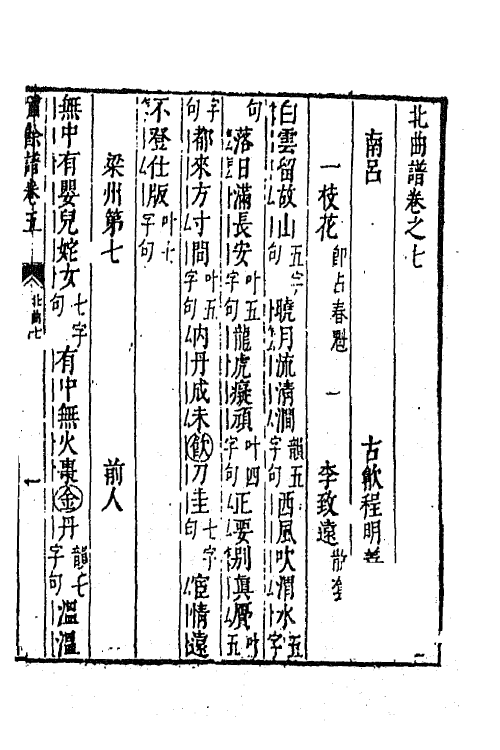 北曲譜卷之七
南呂　古歙程明善
一枝花　即占春魁　一　李致遠　散套
白雲留故山五字句曉月流清澗韻五字句西風吹渭水五字
句落日滿長安叶五字句龍虎癡頑叶四字句正要別真贋叶五
字句都來方寸間叶五字句內丹成未飲刀圭七字句宦情遠
不登仕版叶七字句
梁州第七　前人
無中有嬰兒姹女七字句有中無火棗金丹韻七字句溫溫
嘯餘譜卷五　北曲七　一